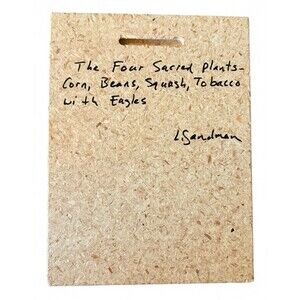 The Four Sacred Plants-
Corn, Beans, Squash, Tobacco
with Eagles
LSandman